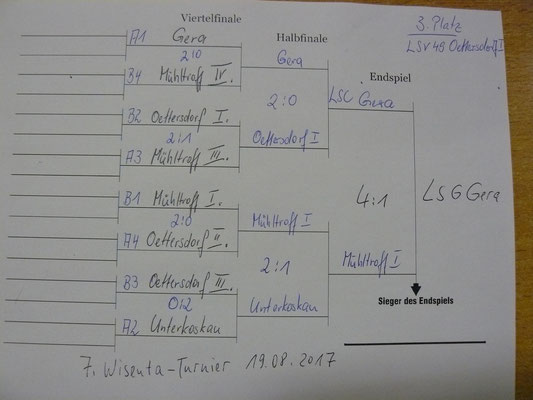 Viertelfinale
Halbfinale
Endspiel
3. Platz
LSV 49 Oettersdorf I
A1 Gera
2:0
B4 Mühltroff IV.
B2 Oettersdorf I.
2:1
A3 Mühltroff III.
B1 Mühltroff I.
2:0
A4 Oettersdorf II.
B3 Oettersdorf III.
0:2
A2 Unterkoskau
Gera
2:0
Oettersdorf I
Mühltroff I
2:1
Unterkoskau
LSC Gera
4:1
Mühltroff I
LSG Gera
Sieger des Endspiels
7. Wisenta-Turnier 19.08.2017